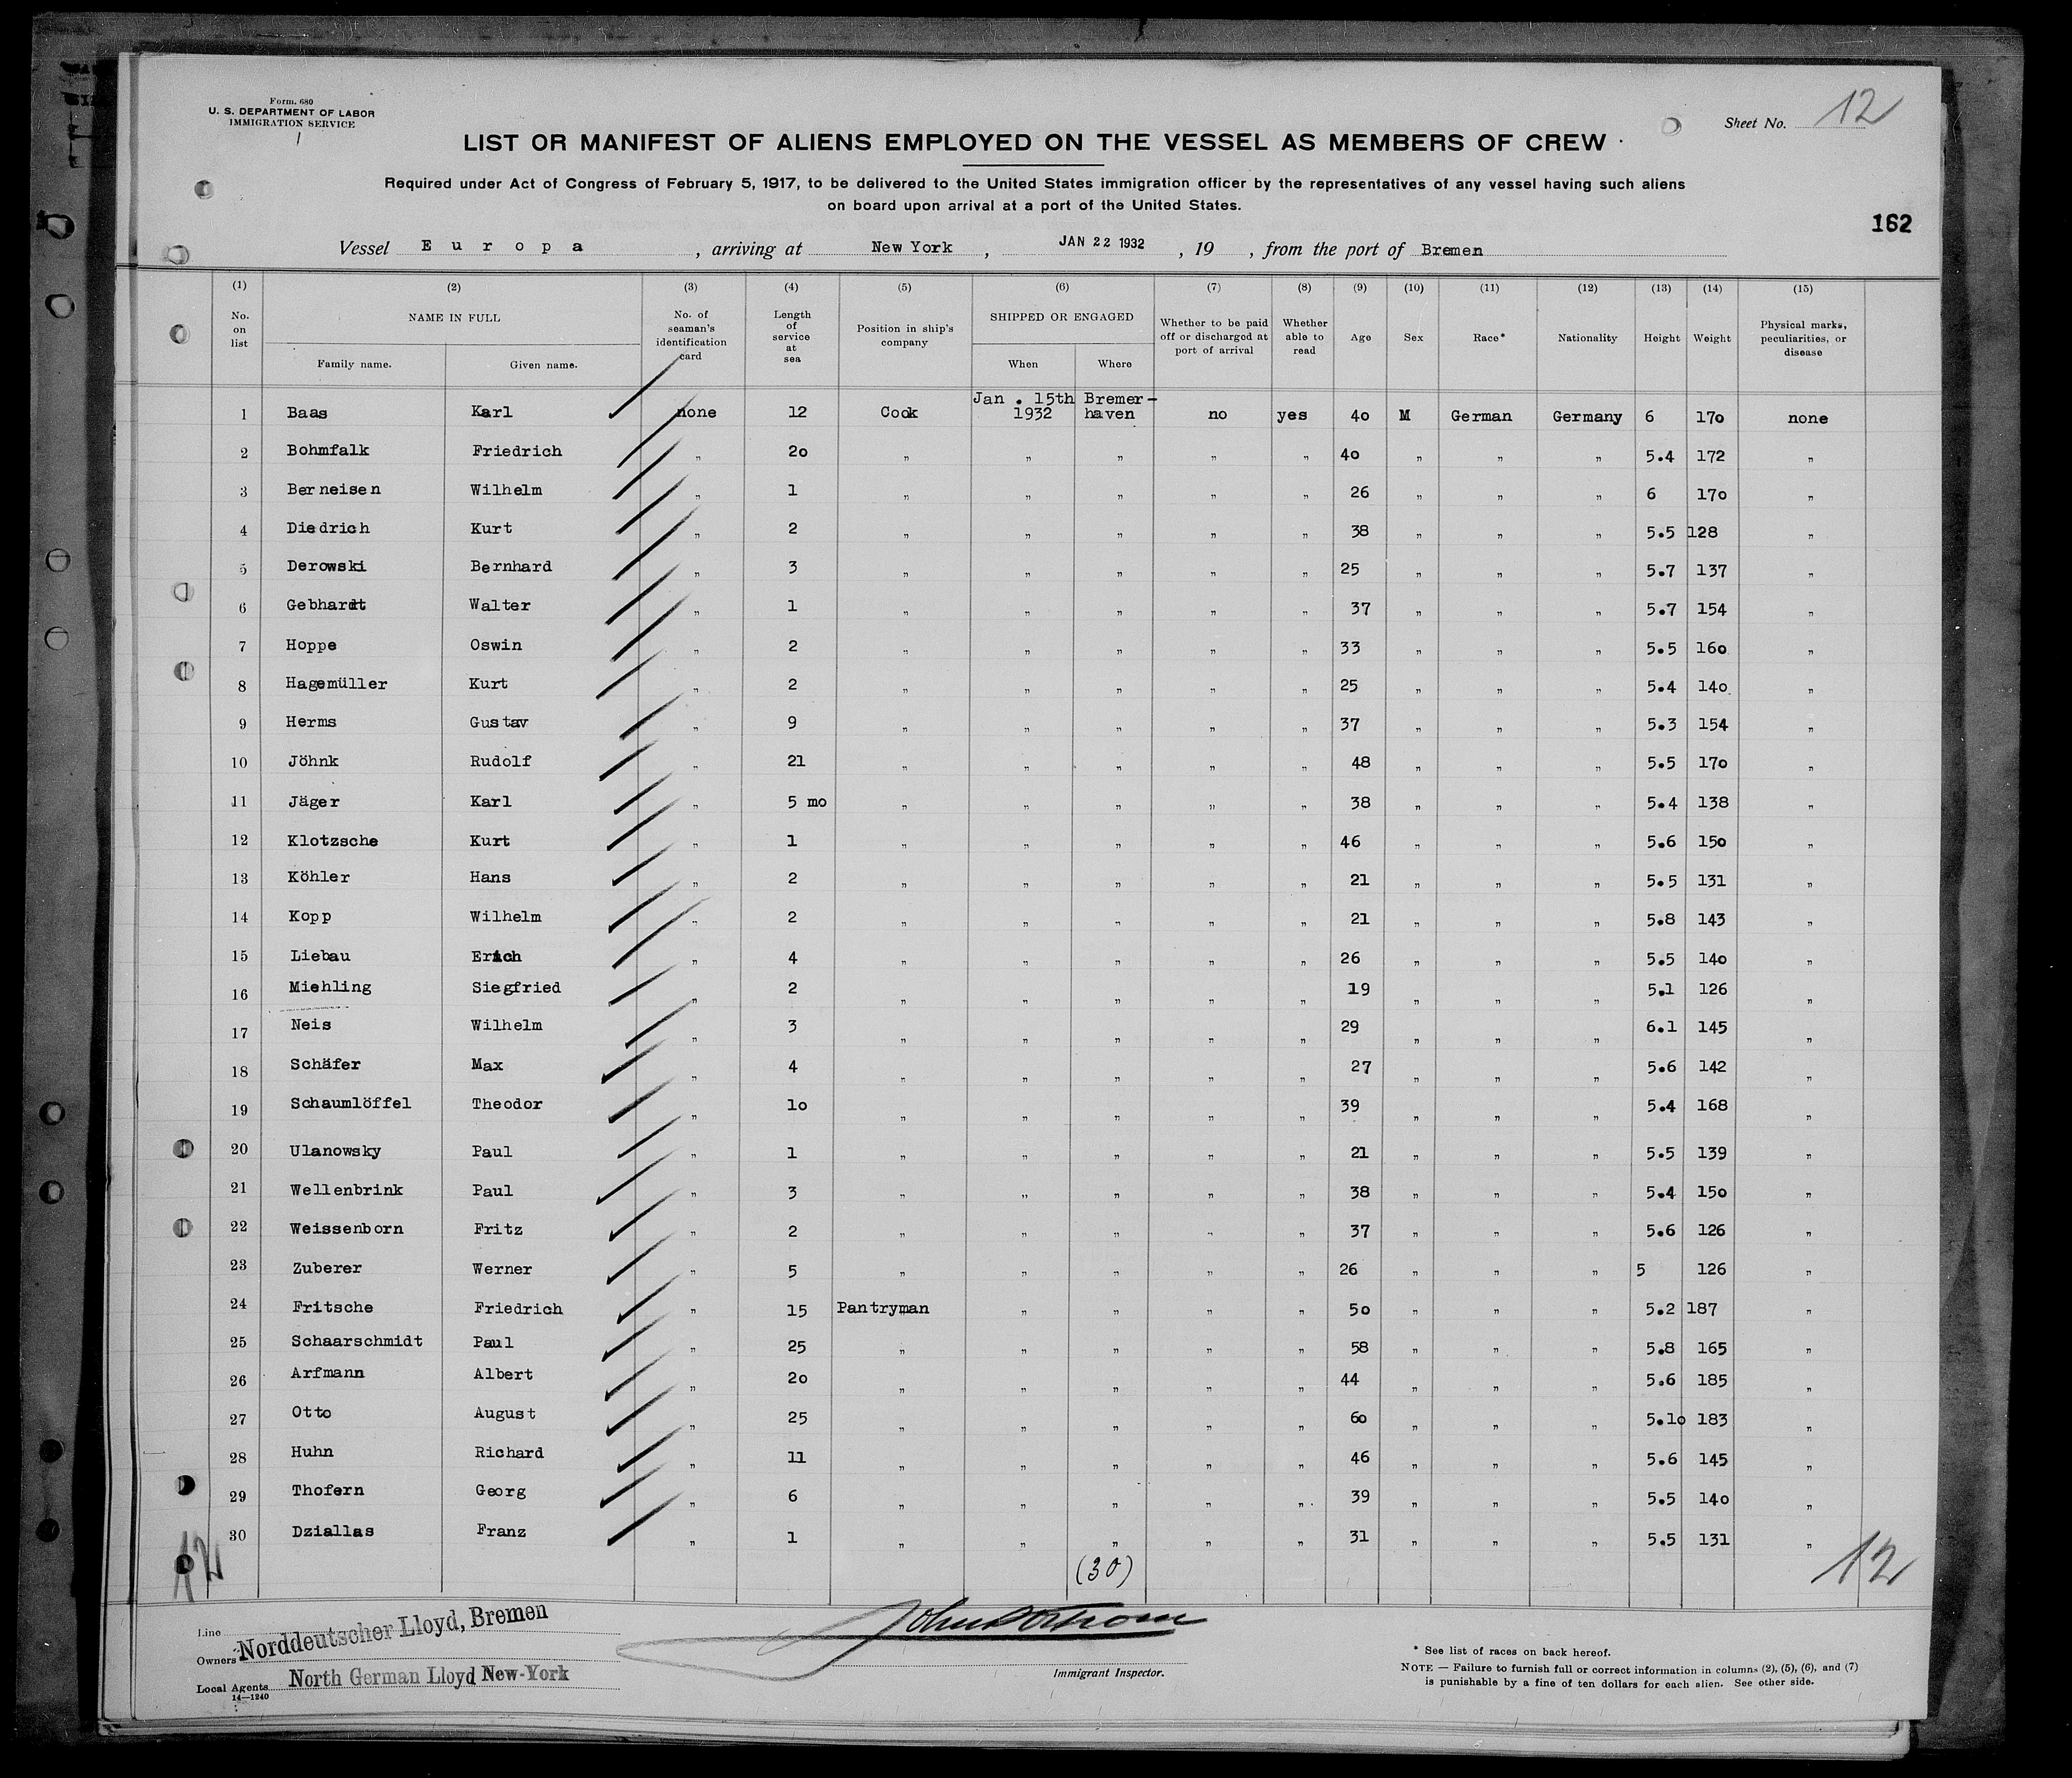 Form. 680
U. S. DEPARTMENT OF LABOR
IMMIGRATION SERVICE
Sheet No. 12
LIST OR MANIFEST OF ALIENS EMPLOYED ON THE VESSEL AS MEMBERS OF CREW
Required under Act of Congress of February 5, 1917, to be delivered to the United States immigration officer by the representatives of any vessel having such aliens
on board upon arrival at a port of the United States.
162
Vessel Europa, arriving at New York, JAN 22 1932, 19 , from the port of Bremen
(1) (2) (3) (4) (5) (6) (7) (8) (9) (10) (11) (12) (13) (14) (15)
No. on list NAME IN FULL Family name. Given name. No. of seaman's identification card Length of service at sea Position in ship's company SHIPPED OR ENGAGED When Where Whether to be paid off or discharged at port of arrival Whether able to read Age Sex Race* Nationality Height Weight Physical marks, peculiarities, or disease
1 Baas Karl none 12 Cook Jan. 15th 1932 Bremer-haven no yes 40 M German Germany 6 170 none
2 Bohmfalk Friedrich " 20 " " " " " 40 " " " 5.4 172 "
3 Berneisen Wilhelm " 1 " " " " " 26 " " " 6 170 "
4 Diedrich Kurt " 2 " " " " " 38 " " " 5.5 128 "
5 Derowski Bernhard " 3 " " " " " 25 " " " 5.7 137 "
6 Gebhardt Walter " 1 " " " " " 37 " " " 5.7 154 "
7 Hoppe Oswin " 2 " " " " " 33 " " " 5.5 160 "
8 Hagemüller Kurt " 2 " " " " " 25 " " " 5.4 140 "
9 Herms Gustav " 9 " " " " " 37 " " " 5.3 154 "
10 Jöhnk Rudolf " 21 " " " " " 48 " " " 5.5 170 "
11 Jäger Karl " 5 mo " " " " " 38 " " " 5.4 138 "
12 Klotzsche Kurt " 1 " " " " " 46 " " " 5.6 150 "
13 Köhler Hans " 2 " " " " " 21 " " " 5.5 131 "
14 Kopp Wilhelm " 2 " " " " " 21 " " " 5.8 143 "
15 Liebau Erich " 4 " " " " " 26 " " " 5.5 140 "
16 Miehling Siegfried " 2 " " " " " 19 " " " 5.1 126 "
17 Neis Wilhelm " 3 " " " " " 29 " " " 6.1 145 "
18 Schäfer Max " 4 " " " " " 27 " " " 5.6 142 "
19 Schaumlöffel Theodor " 10 " " " " " 39 " " " 5.4 168 "
20 Ulanowsky Paul " 1 " " " " " 21 " " " 5.5 139 "
21 Wellenbrink Paul " 3 " " " " " 38 " " " 5.4 150 "
22 Weissenborn Fritz " 2 " " " " " 37 " " " 5.6 126 "
23 Zuberer Werner " 5 " " " " " 26 " " " 5 126 "
24 Fritsche Friedrich " 15 Pantryman " " " " 50 " " " 5.2 187 "
25 Schaarschmidt Paul " 25 " " " " " 58 " " " 5.8 165 "
26 Arfmann Albert " 20 " " " " " 44 " " " 5.6 185 "
27 Otto August " 25 " " " " " 60 " " " 5.10 183 "
28 Huhn Richard " 11 " " " " " 46 " " " 5.6 145 "
29 Thofern Georg " 6 " " " " " 39 " " " 5.5 140 "
30 Dziallas Franz " 1 " " " " " 31 " " " 5.5 131 "
12 (30) 12
Line
Owners Norddeutscher Lloyd, Bremen
Local Agents North German Lloyd New-York
14—1240
Immigrant Inspector.
* See list of races on back hereof.
NOTE — Failure to furnish full or correct information in columns (2), (5), (6), and (7)
is punishable by a fine of ten dollars for each alien. See other side.